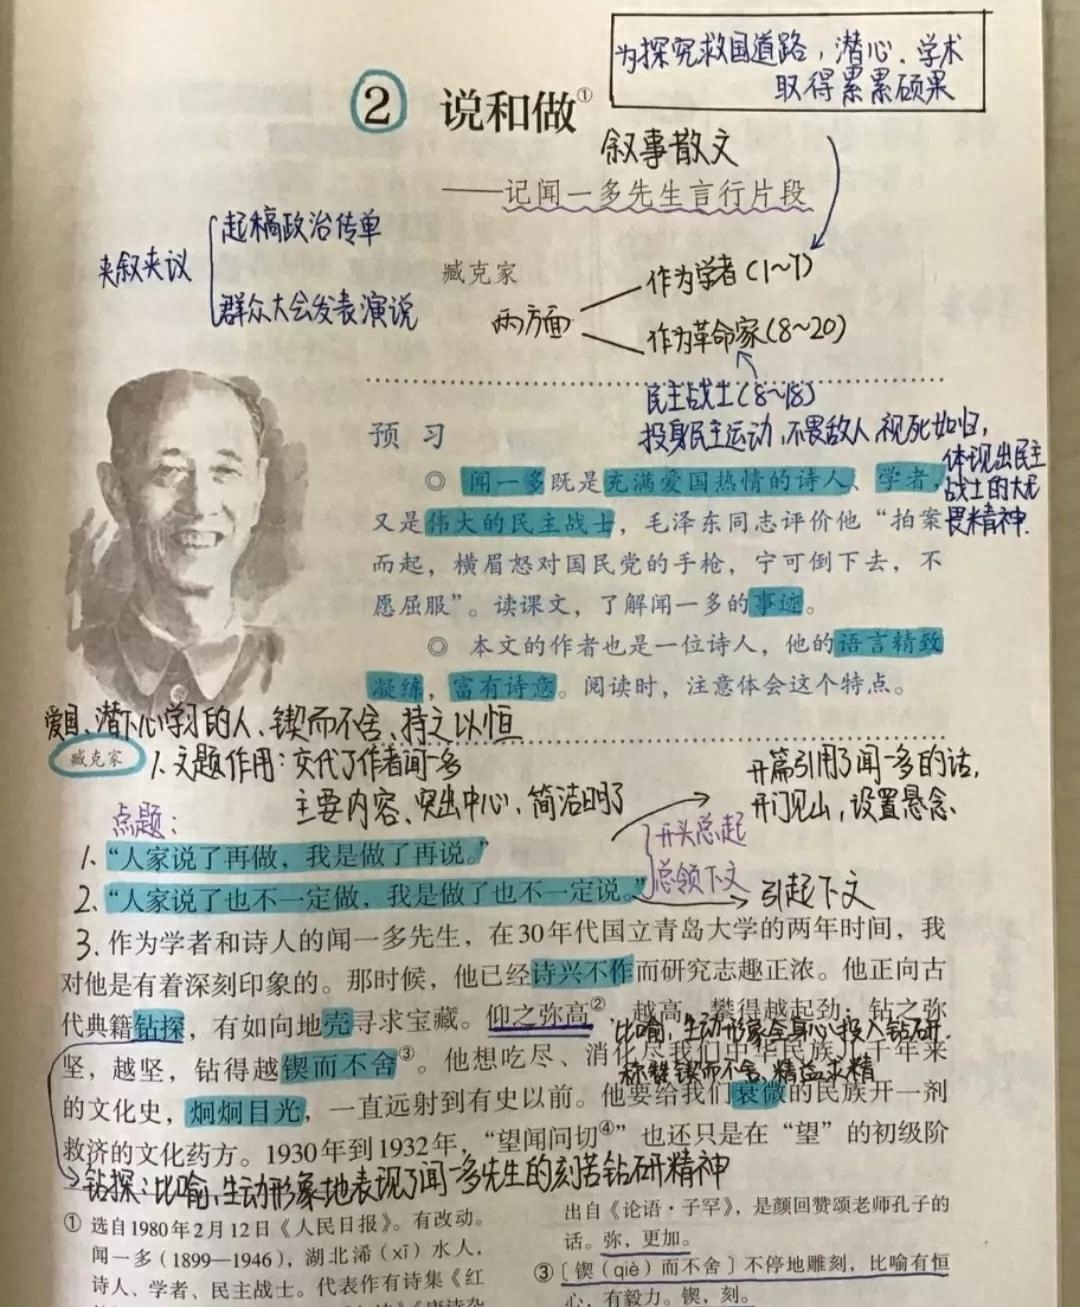 为探究救国道路，潜心学术
取得累累硕果
2 说和做①
叙事散文
——记闻一多先生言行片段
夹叙夹议
起稿政治传单
群众大会发表演说
臧克家
两方面
作为学者(1~7)
作为革命家(8~20)
民主战士(8~18)
投身民主运动，不畏敌人，视死如归，
体现出民主
战士的大无
畏精神.
预习
◎ 闻一多既是充满爱国热情的诗人、学者，
又是伟大的民主战士，毛泽东同志评价他“拍案
而起，横眉怒对国民党的手枪，宁可倒下去，不
愿屈服”。读课文，了解闻一多的事迹。
◎ 本文的作者也是一位诗人，他的语言精致
凝练，富有诗意。阅读时，注意体会这个特点。
爱国、潜下心学习的人、锲而不舍、持之以恒
臧克家
1.文题作用：交代了作者闻一多
主要内容、突出中心、简洁明了
开篇引用了闻一多的话，
开门见山，设置悬念、
点题：
1、“人家说了再做，我是做了再说。”
2、“人家说了也不一定做，我是做了也不一定说。”
开头总起
总领下文
引起下文
3.作为学者和诗人的闻一多先生，在30年代国立青岛大学的两年时间，我
对他是有着深刻印象的。那时候，他已经诗兴不作而研究志趣正浓。他正向古
代典籍钻探，有如向地壳寻求宝藏。仰之弥高②，越高，攀得越起劲；钻之弥
比喻，生动形象全身心投入钻研.
坚，越坚，钻得越锲而不舍③。他想吃尽、消化尽我们中华民族几千年来
称赞锲而不舍、精益求精
的文化史，炯炯目光，一直远射到有史以前。他要给我们衰微的民族开一剂
救济的文化药方。1930年到1932年，“望闻问切④”也还只是在“望”的初级阶
钻探：比喻，生动形象地表现了闻一多先生的刻苦钻研精神
① 选自1980年2月12日《人民日报》。有改动。
闻一多（1899—1946），湖北浠（xī）水人，
诗人、学者、民主战士。代表作有诗集《红
出自《论语·子罕》，是颜回赞颂老师孔子的
话。弥，更加。
③〔锲（qiè）而不舍〕不停地雕刻，比喻有恒
心，有毅力。锲，刻。